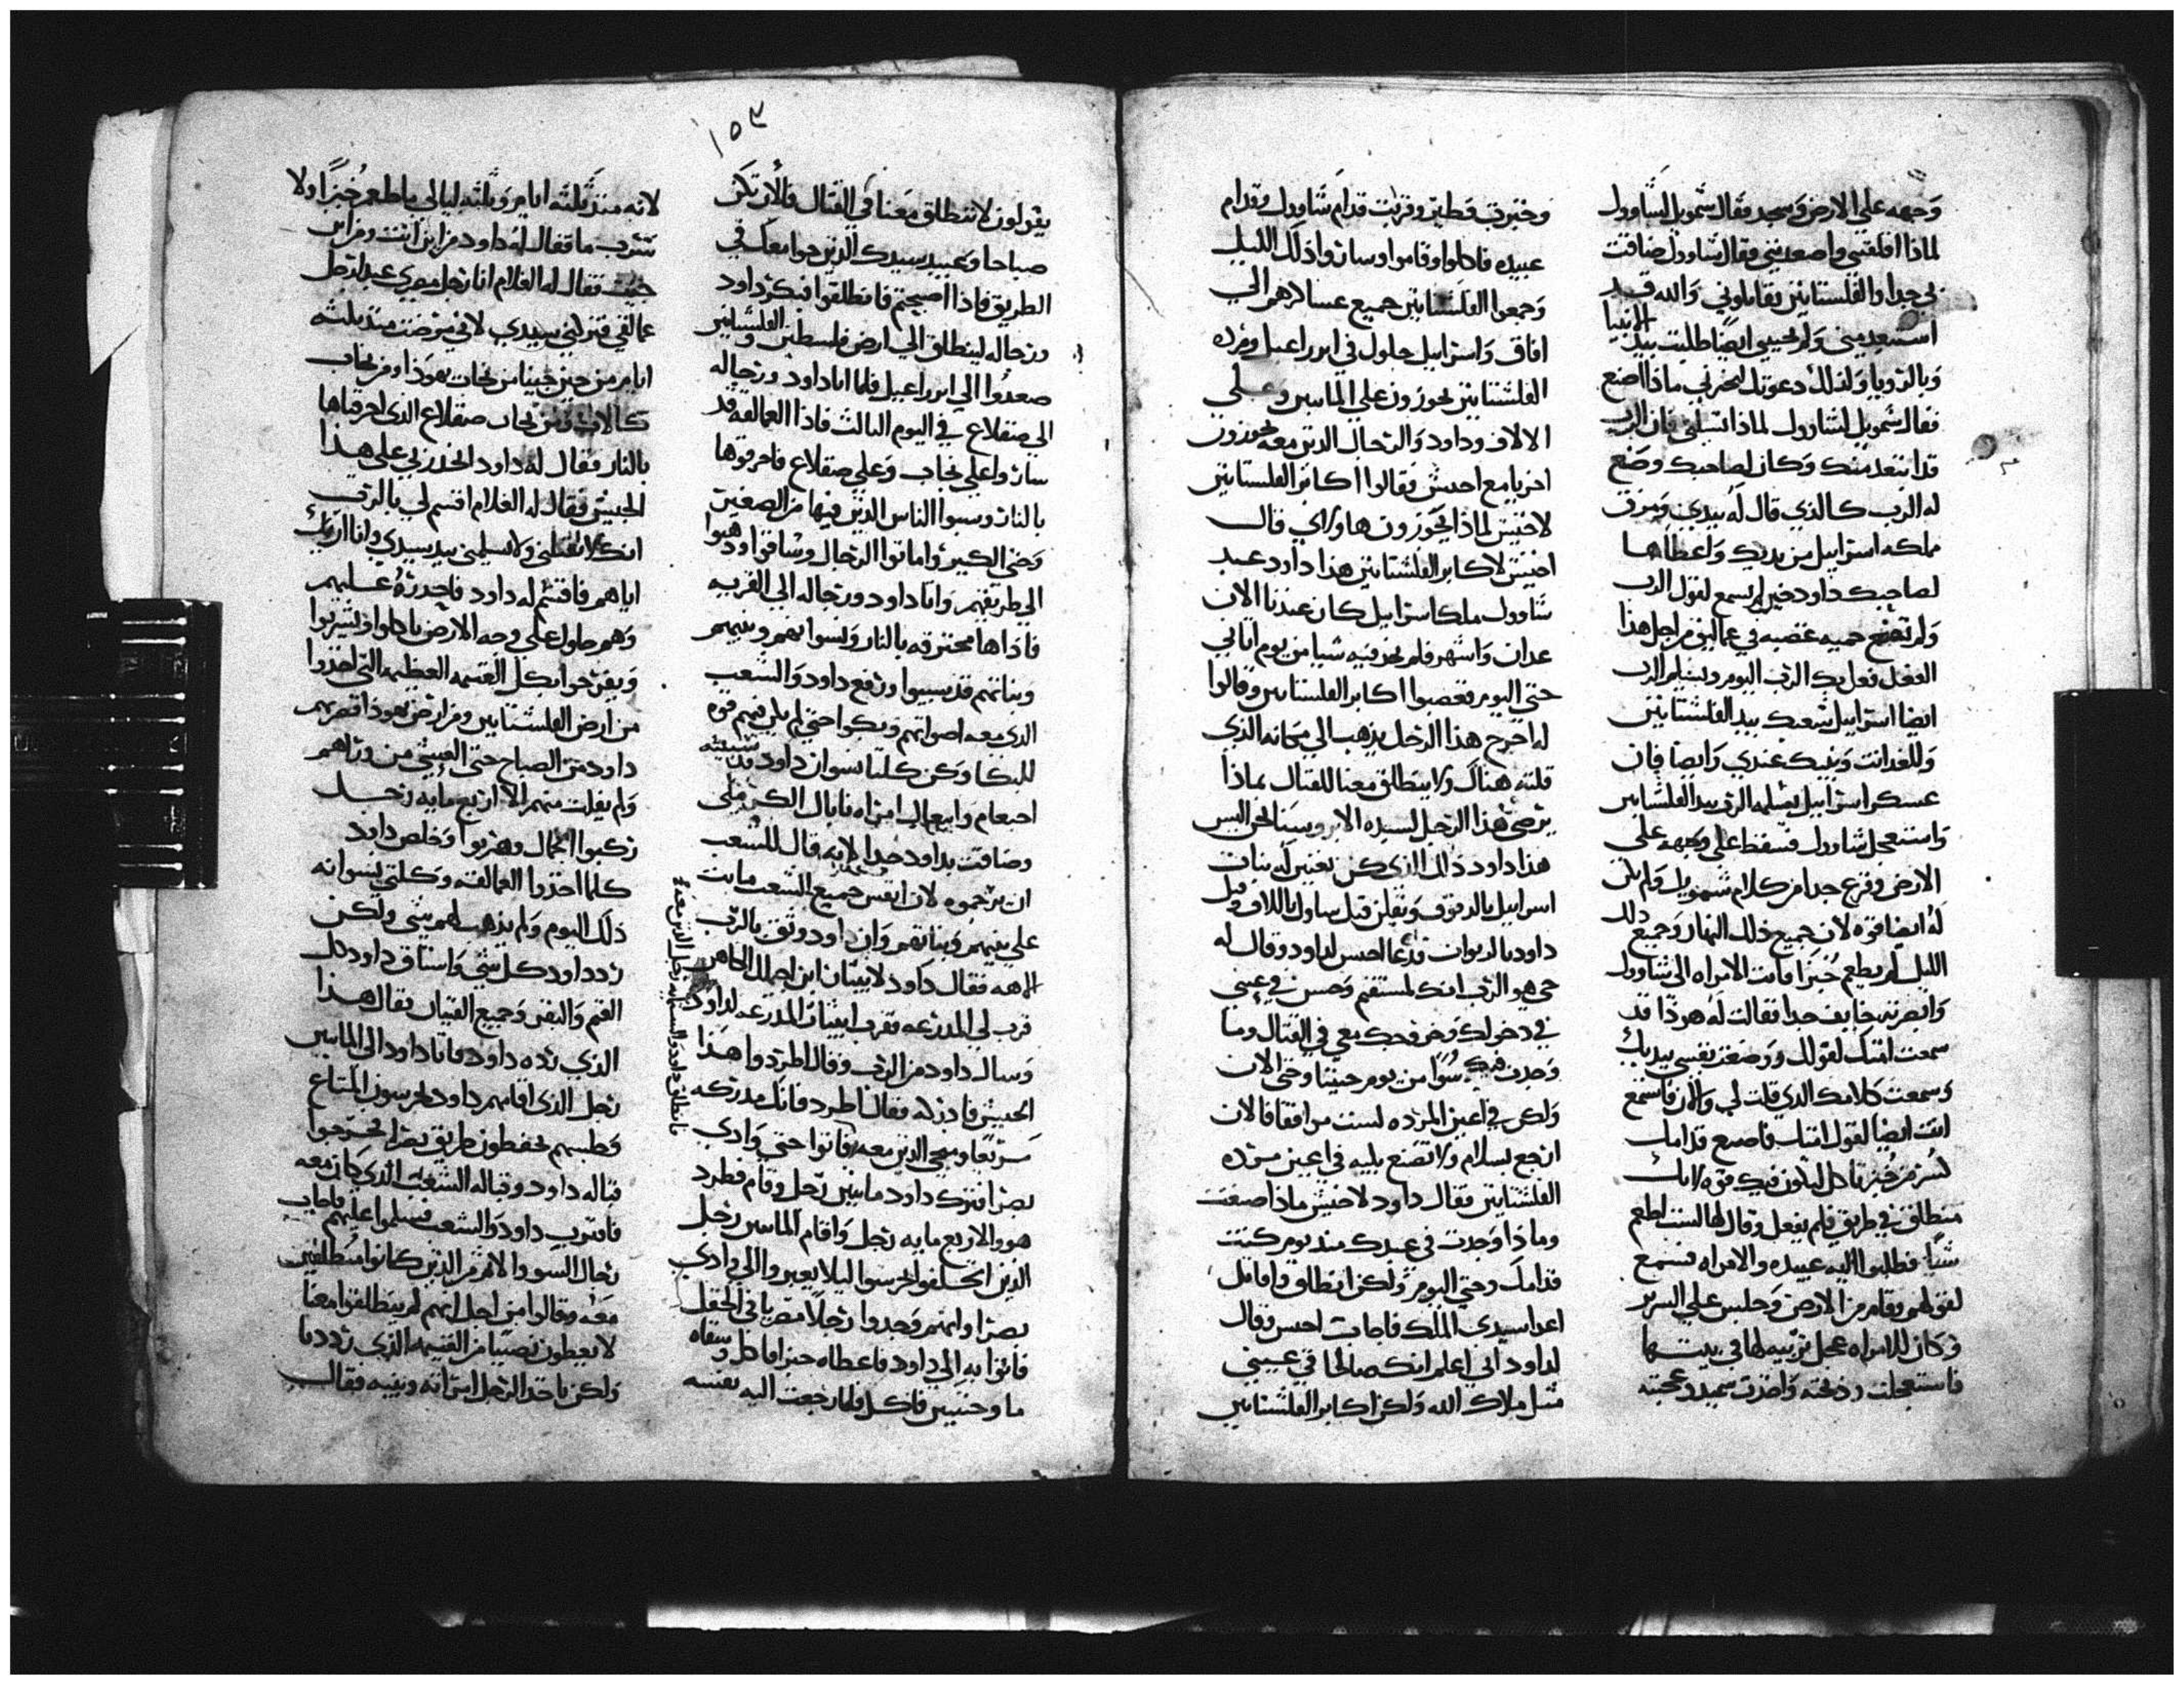 وجهه علي الارض وسجد وقال شمويل لشاوول
لماذا اقلقتني واصعدتني فقال شاوول ضاقت
بي جدا والفلستانين يقاتلوني والله قد
استبعد مني ولم يجيبني ايضا طلبت بيد الانبيا
وبالرويا ولذلك دعوتك لتخبرني ماذا اصنع
فقال شمويل لشاوول لماذا تسلني فان الرب
قد ابتعد منك وكان لصاحبك وصنع
له الرب كالذي قال له بيدي ومزق
ملكه اسراييل من يديك واعطاها
لصاحبك داود لم تسمع لقول الرب
ولم تصنع حميه غضبه في عماليق من اجل هذا
الفعل فعل بك الرب اليوم ويسلم الرب
ايضا اسراييل شعبك بيد الفلشتانين
وللغد انت وبنيك عندي وايضا فان
عسكر اسراييل يسلمه الرب بيد الفلشتانين
واستعجل شاوول فسقط علي وجهه علي
الارض وفزع جدا من كلام شمويل ولم تكن
له ايضا قوه لان جميع ذلك النهار وجميع ذلك
الليل لم يطعم خبزا فاتت الامراه الي شاوول
وابصرته خايف جدا فقالت له هوذا قد
سمعت امتك لقولك ووضعت نفسي بيديك
وسمعت كلامك الذي قلت لي والان فاستمع
انت ايضا لقول امتك فاصنع قدامك
كسر من خبز تاكل لتكون فيك قوه لانك
منطلق في طريق فلم يفعل وقال لها لست اطعم
شيا فطلبوا اليه عبيده والامراه فسمع
لقولهم وقام من الارض وجلس علي السرير
وكان للامراه عجل تربيه لها في بيتها
فاستعجلت وذبحته واخذت سميد وعجنته
وخبزت فطير وقربت قدام شاوول وقدام
عبيده فاكلوا وقاموا وساروا ذلك الليل
وجمعوا الفلشتانين جميع عساكرهم الي
افاق واسراييل حلول في ابزراعيل ومرده
الفلشتانين يجوزون علي المايتين وعلي
الالاف وداود والرجال الذين معه يجوزون
اخريا مع احيش فقالوا اكابر الفلستانين
لاخيش لماذا يجوزون هاولاي فقال
اخيش لاكابر الفلشتانين هذا داود عبد
شاوول ملك اسراييل كان عندنا الان
عدان واشهر فلم نجد فيه شيا من يوم اتاني
حتي اليوم فغضبوا اكابر الفلستانين وقالوا
له اخرج هذا الرجل يذهب الي مكانه الذي
قلته هناك ولا ينطلق معنا للقتال بماذا
يرضي هذا الرجل لسيده الا بروسنا نحن اليس
هذا داود ذاك الذي كن يغنين له بنات
اسراييل بالدفوف ويقلن قتل شاول بالالاف وقتل
داود بالربوات فدعا احيس لداود وقال له
حي هو الرب انك لمستقيم وحسن في عيني
في دخولك وخروجك معي في القتال وما
وجدت فيك سوا من يوم جيتنا وحتي الان
ولكن في اعين المرده لست موافقا فالان
ارجع بسلام ولا تصنع بليه في اعين مرده
الفلشتانين فقال داود لاخيش ماذا صنعت
وماذا وجدت في عبدك منذ يوم كنت
قدامك وحتي اليوم ولكن انطلق واقاتل
اعدا سيدي الملك فاجاب احيس وقال
لداود اني اعلم انك صالحا في عيني
مثل ملاك الله ولكن اكابر الفلشتانين
١٥٣
يقولون لا تنطلق معنا في القتال فالان تكن
صباحا وعبيد سيدك الذين جوا معك في
الطريق فاذا اصبحتم فانطلقوا فبكر داود
ورجاله لينطلق الي ارض فلسطين والفلشتانين
صعدوا الي ابزراعيل فلما اتا داود ورجاله
الي صقلاع في اليوم الثالث فاذا العمالقه قد
ساروا علي نجاب وعلي صقلاع فاحرقوها
بالنار وسبوا الناس الذين فيها من الصغير
وحتي الكبير واماتوا الرجال وساقوا وذهبوا
الي طريقهم واتا داود ورجاله الي القريه
فاذا ها محترقه بالنار ونسوانهم وبنيهم
وبناتهم قد سبيوا ورفع داود والشعب
الذي معه اصواتهم وبكوا حتي لم يبق فيهم قوه
للبكا وكن كلتا نسوان داود قد سبيته
احنعام وابيعال امراه نابال الكرملي
وضاقت بداود جدا لانه قال للشعب
ان يرجموه لان انفس جميع الشعب كانت
علي بنيهم وبناتهم وان داود وثق بالرب
الاهه فقال داود لابيتار ابن اخيملك الكاهن
قرب لي المدرعه فقرب ابيتار المدرعه لداود
وسال داود من الرب وقال اطرد وا هذا
الجيش فادركه فقال اطرد فانك مدركه
سريعا ومنجي الذين معه فاتوا حتي وادي
بصرا فترك داود مايتين رجل وقام فطرد
هو والاربع مايه رجل واقام المايتين رجل
الذين اتخلفوا ليحرسوا ليلا يعبروا الي وادي
بصرا وانهم وجدوا رجلا مصريا في الحقل
فاتوا به الي داود فاعطاه خبزا فاكل وسقاه
ما وجنتين فاكل فلما رجعت اليه نفسه
فانطلق داود والستمايه رجل الذين معه
لانه منذ ثلثه ايام وثلثه ليالي ما طعم خبزا ولا
شرب ما فقال له داود من اين انت ومن اين
جيت فقال له الغلام انا رجل مصري عبد لرجل
عمالقي فتركني سيدي لاني مرضت منذ ثلثه
ايام من حين جينا من نجاب يهوذا ومن نجاب
كالاب ومن نجاب صقلاع الذي احرقناها
بالنار فقال له داود انحدر بي علي هذا
الجيش فقال له الغلام اقسم لي بالرب
انك لا تقتلني ولا تسلمني بيد سيدي وانا اريك
اياهم فاقسم له داود فاحدره عليهم
وهم حلول علي وجه الارض ياكلوا ويشربوا
ويفرحوا بكل القسمه العظيمه التي اخذوا
من ارض الفلشتانين ومن ارض يهوذا فضربهم
داود من الصباح حتي العشي من وراهم
ولم يفلت منهم الا اربع مايه رجل
ركبوا الجمال وهربوا وخلص داود
كلما اخذوا العمالقه وكلتي نسوانه
ذلك اليوم ولم يذهب لهم شي ولكن
رد داود كل شي واستاق داود كل
الغنم والبقر وجميع القنيان فقال هذا
الذي رده داود فاتا داود الي المايتين
رجل الذي اقامهم داود يحرسون المتاع
وحلسهم يحفظون طريق بصرا فخرجوا
قباله داود وقباله الشعب الذي كان معه
فاقترب داود والشعب فسلموا عليهم فاجاب
رجال السو والاثم من الذين كانوا منطلقين
معه وقالوا من اجل انهم لم ينطلقوا معنا
لا يعطون نصيبا من القسمه الذي رددنا
ولكن ياخذ الرجل امراته وبنيه فقال